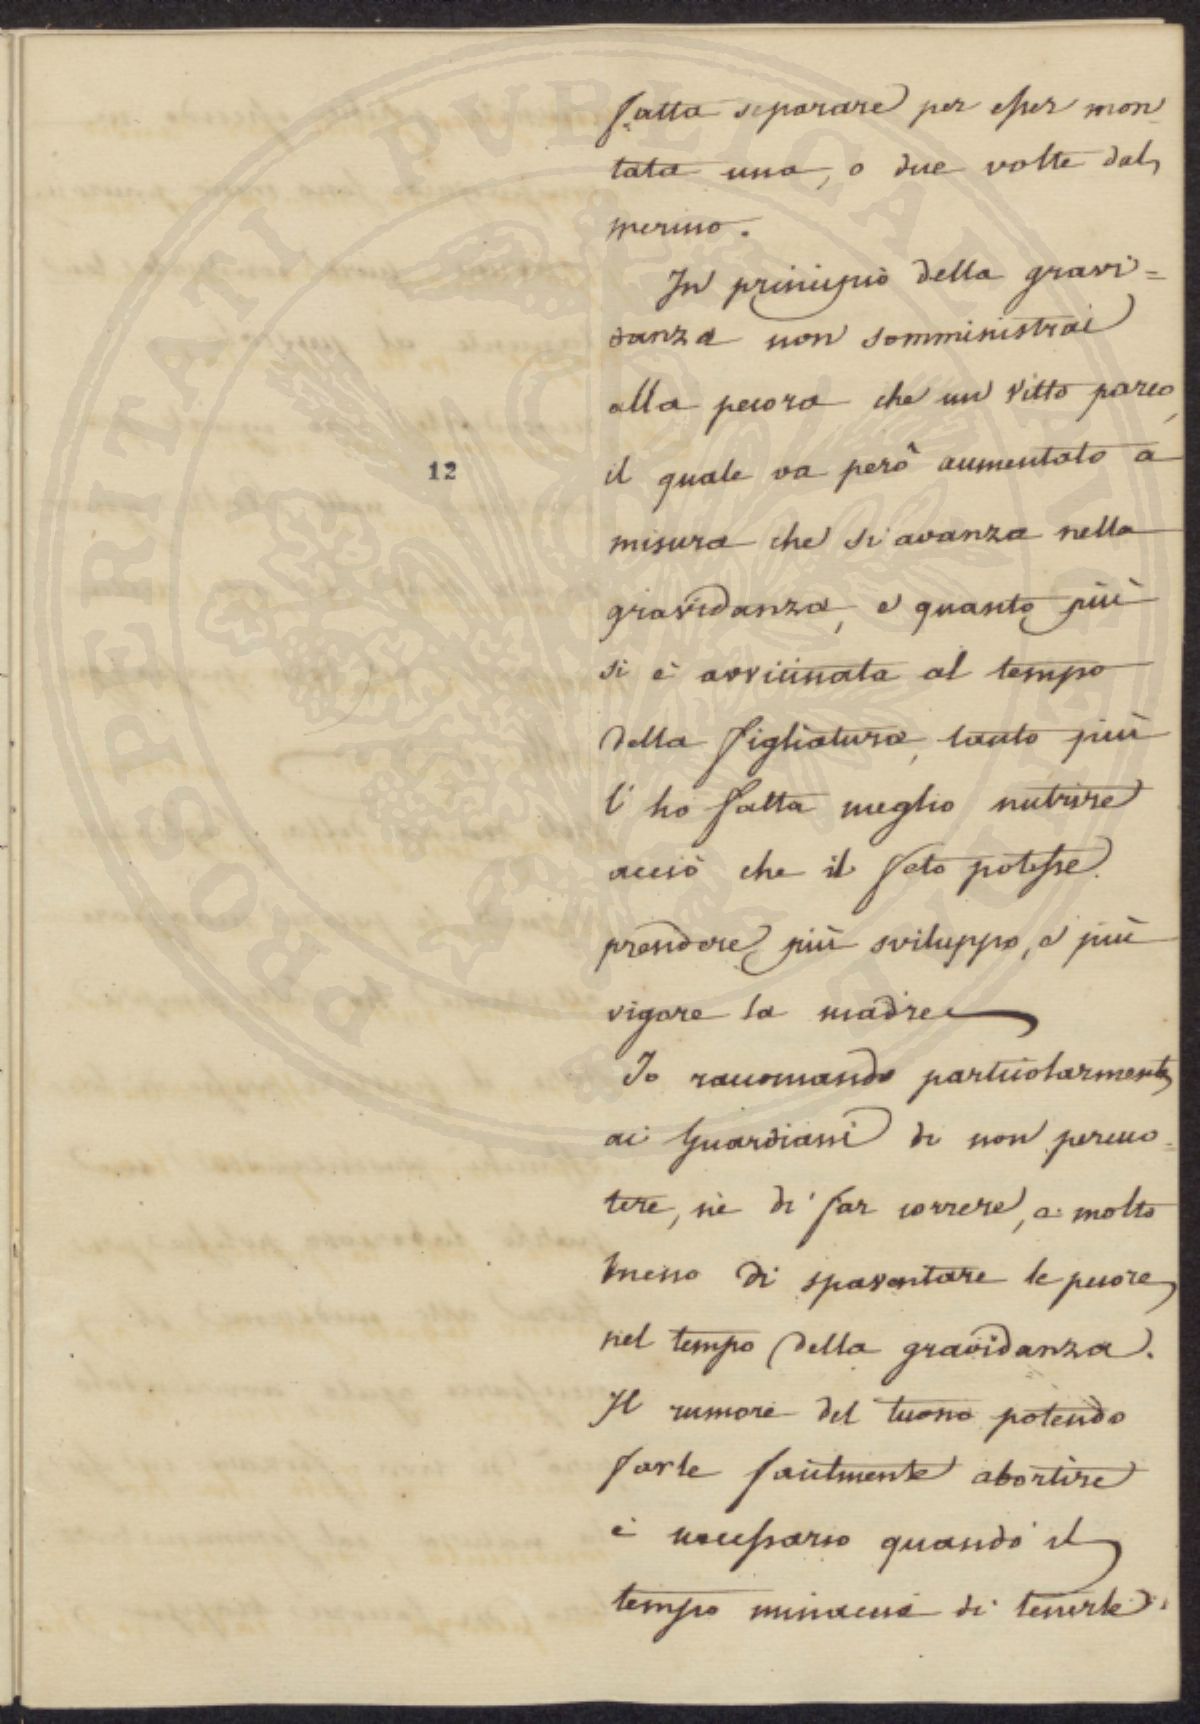 fatta separare per esser mon
tata una, o due volte dal
merino.
In principiò della gravi=
danza non somministrai
alla pecora che un vitto parco,
12
il quale va però aumentato a
misura che si avanza nella
gravidanza, e quanto più
si è avvicinata al tempo
della figliatura, tanto più
l'ho fatta meglio nutrire
acciò che il feto potesse
prendere più sviluppo, e più
vigore la madre
Io raccomando particolarmente
ai Guardiani di non percuo=
tere, nè di far correre, e molto
meno di spaventare le pecore
nel tempo della gravidanza.
Il rumore del tuono potendo
farle facilmente abortire
è necessario quando il
tempo minaccia di tenerle
PROSPERITATI PUBLICAE